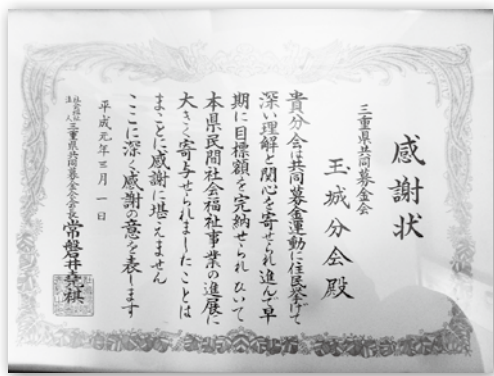 感謝状
三重県共同募金会
玉城分会殿
貴分会は共同募金運動に住民挙げて
深い理解と関心を寄せられ進んで早
期に目標額を完納せられひいて
本県民間社会福祉事業の進展に
大きく寄与せられましたことは
まことに感謝に堪えません
ここに深く感謝の意を表します
平成元年三月一日
社会福祉法人三重県共同募金会会長常磐井堯祺